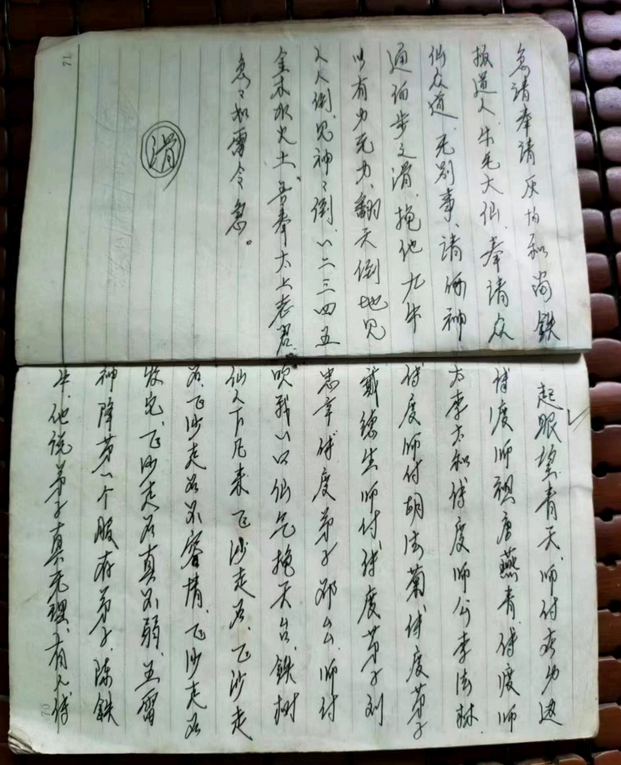 急请奉请灰均和尚铁
板道人牛毛大仙、奉请众
仙众道、无别事、请神
通之滑、他九牛
有力无力、翻天倒地见
人人倒、见神々倒、一二三四五
金木水火土、吾奉太上老君
急々如雷令急。
滑
71
起眼望青天、师付在功边
传度师祖唐燕青、传度师
太李太和传度师公李法林
传度师付胡法菊、传度弟子
戴德生师付、传度弟子刘
忠传度弟子邓公、师付
吹我一口仙气抱天台、铁树
仙人下凡来飞沙走石、飞沙走
石、飞沙走石不容情、飞沙走石
放完、飞沙走石真不弱、五雷
神降第一个服存弟子、降铁
牛、他说弟子真无理、有人传
70